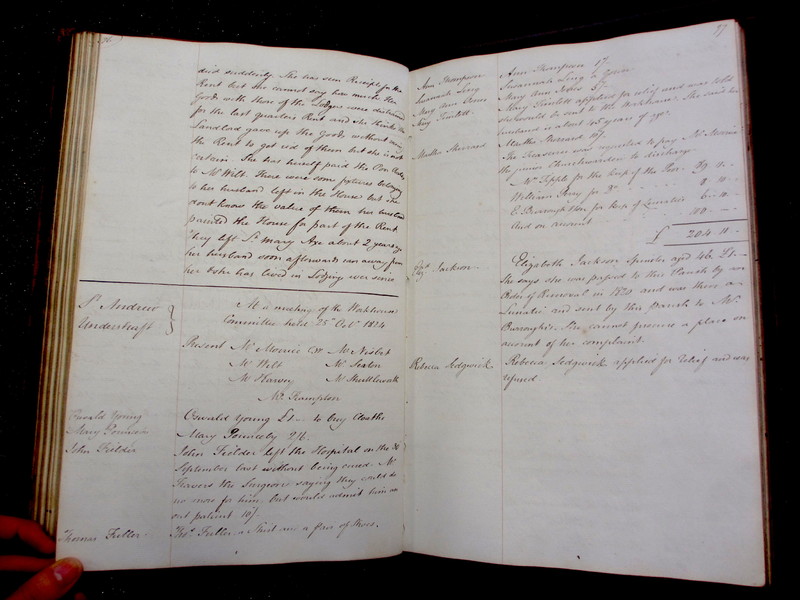 died suddenly. She has seen Receipts for the
Rent but she cannot say how much. Her
Goods with those of the Lodgers were distrained
for the last quarters Rent and she thinks the
Landlord gave up the Goods without
the Rent to get rid of them but she is not
certain. She has herself paid the Poor Rates
to Mr Wilt. There were some fixtures belonging
to her husband left in the House but she
dont know the value of them her husband
painted the House for part of the Rent
They left St Mary Axe about 2 years ago
her husband soon afterwards ran away from
her & she has lived in Lodging ever since
St Andrew
Undershaft
At a meeting of the Workhouse
Committee held 25 Octr 1824
Present Mr Morris CW Mr Nisbet
Mr Wilt Mr Sexton
Mr Harvey Mr Shuttleworth
Mr Frampton
Oswald Young
Mary Pounceby
John Fielder
Thomas Fuller
Oswald Young £1 to buy Cloaths
Mary Pounceby 2/6
John Fielder left the Hospital on the 30
September last without being cured. Mr
Travers the Surgeon saying they could do
no more for him, but would admit him an
out patient 10/-
Thos Fuller a Shirt and a pair of Shoes.
77
Ann Thompson
Susannah Ling
Mary Ann
Mary
Martha Sherrard
Ann Thompson 17
Susannah Ling
Mary Ann
Mary applied for relief and was told
she would be sent to the Workhouse. She said her
husband is about 45 years of age.
Martha Sherrard
The Treasurer was requested to pay Mr Morris
the junior Churchwarden to discharge
Mr Tipple for the keep of the Poor
William Perry for Do
E. Burroughs Esq for keep of Lunatics
And on account 100
£ 204 11
Elizth Jackson
Elizabeth Jackson Spinster aged 46 £1
She says she was passed to this Parish by an
Order of Removal in 1820 and was then a
Lunatic and sent by this parish to Mr
Burroughs's. She cannot procure a place on
account of her complaint.
Rebecca Sedgwick
Rebecca Sedgwick applied for relief and was
refused